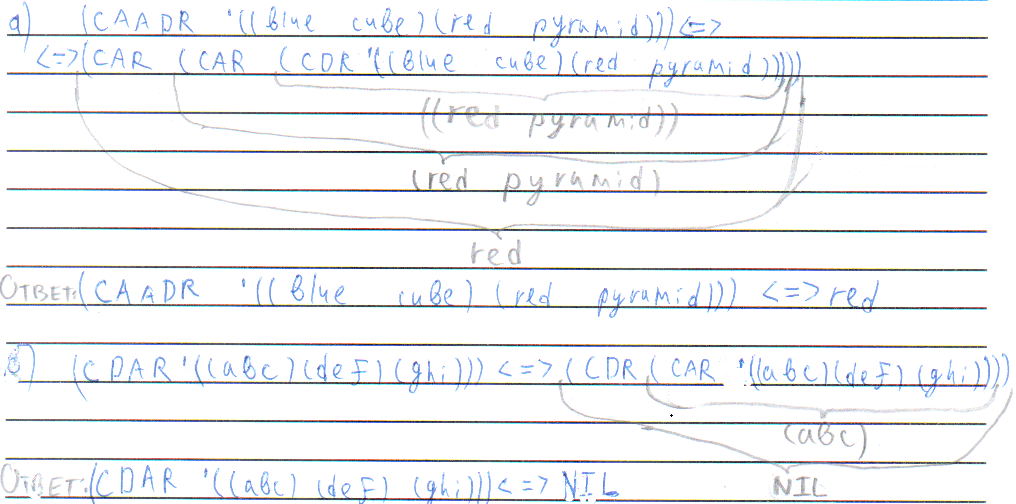 a) (CAADR '((blue cube)(red pyramid)))<=>
<=>(CAR (CAR (CDR '((blue cube)(red pyramid)))))
((red pyramid))
(red pyramid)
red
Ответ:(CAADR '((blue cube) (red pyramid))) <=> red
б) (CDAR '((abc)(def)(ghi))) <=> (CDR (CAR '((abc)(def)(ghi))))
(abc)
NIL
Ответ:(CDAR '((abc) (def) (ghi))) <=> NIL